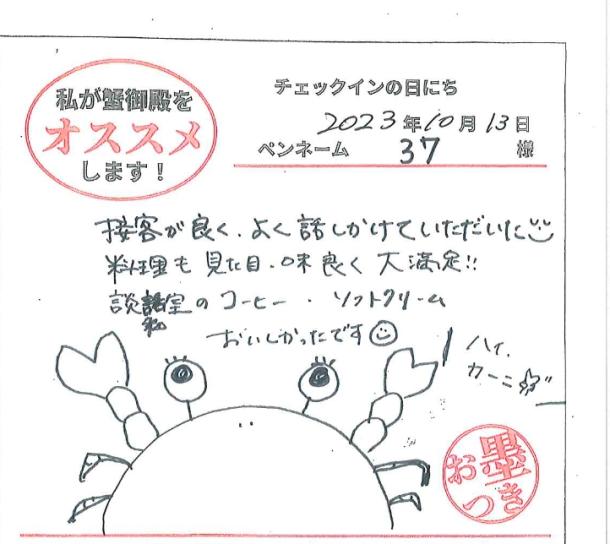 私が蟹御殿を
オススメ
します！
チェックインの日にち
2023年10月13日
ペンネーム 37 様
接客が良く、よく話しかけていただいた
料理も見た目・味良く大満足!!
談話室のコーヒー・ソフトクリーム
おいしかったです
ハイ、
カーニ
お墨つき